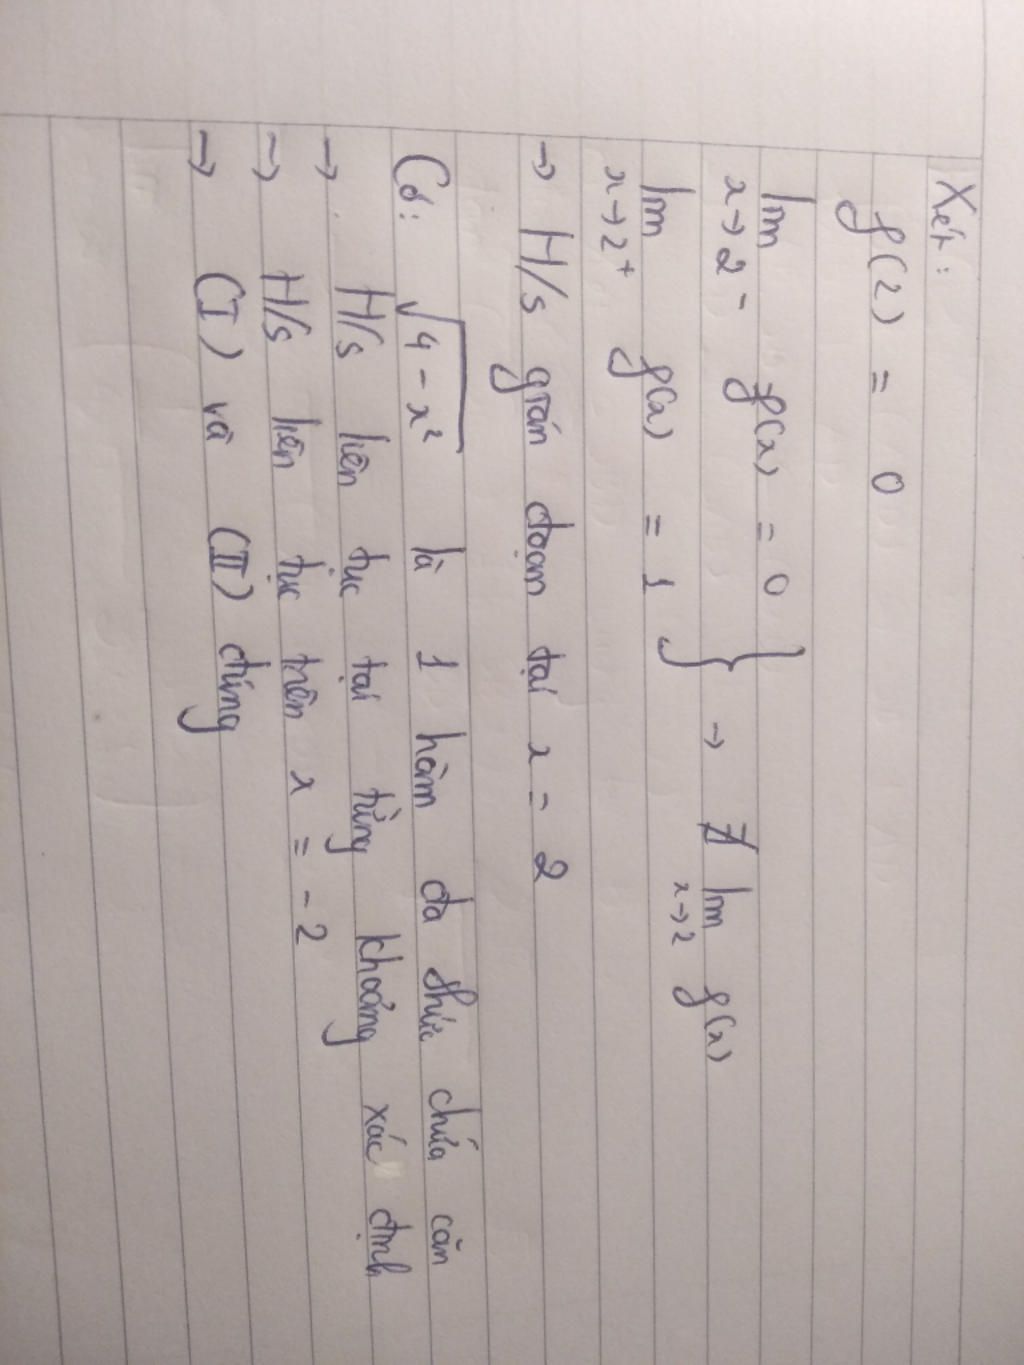 Xét:
f(2) = 0
lim f(x) = 0
x→2⁻
lim f(x) = 1 } → ∄ lim f(x)
x→2⁺ x→2
→ H/s gián đoạn tại x = 2
Có: √4-x² là 1 hàm đa thức chứa căn
→ H/s liên tục tại từng khoảng xác định
→ H/s liên tục trên x = -2
→ (I) và (III) đúng